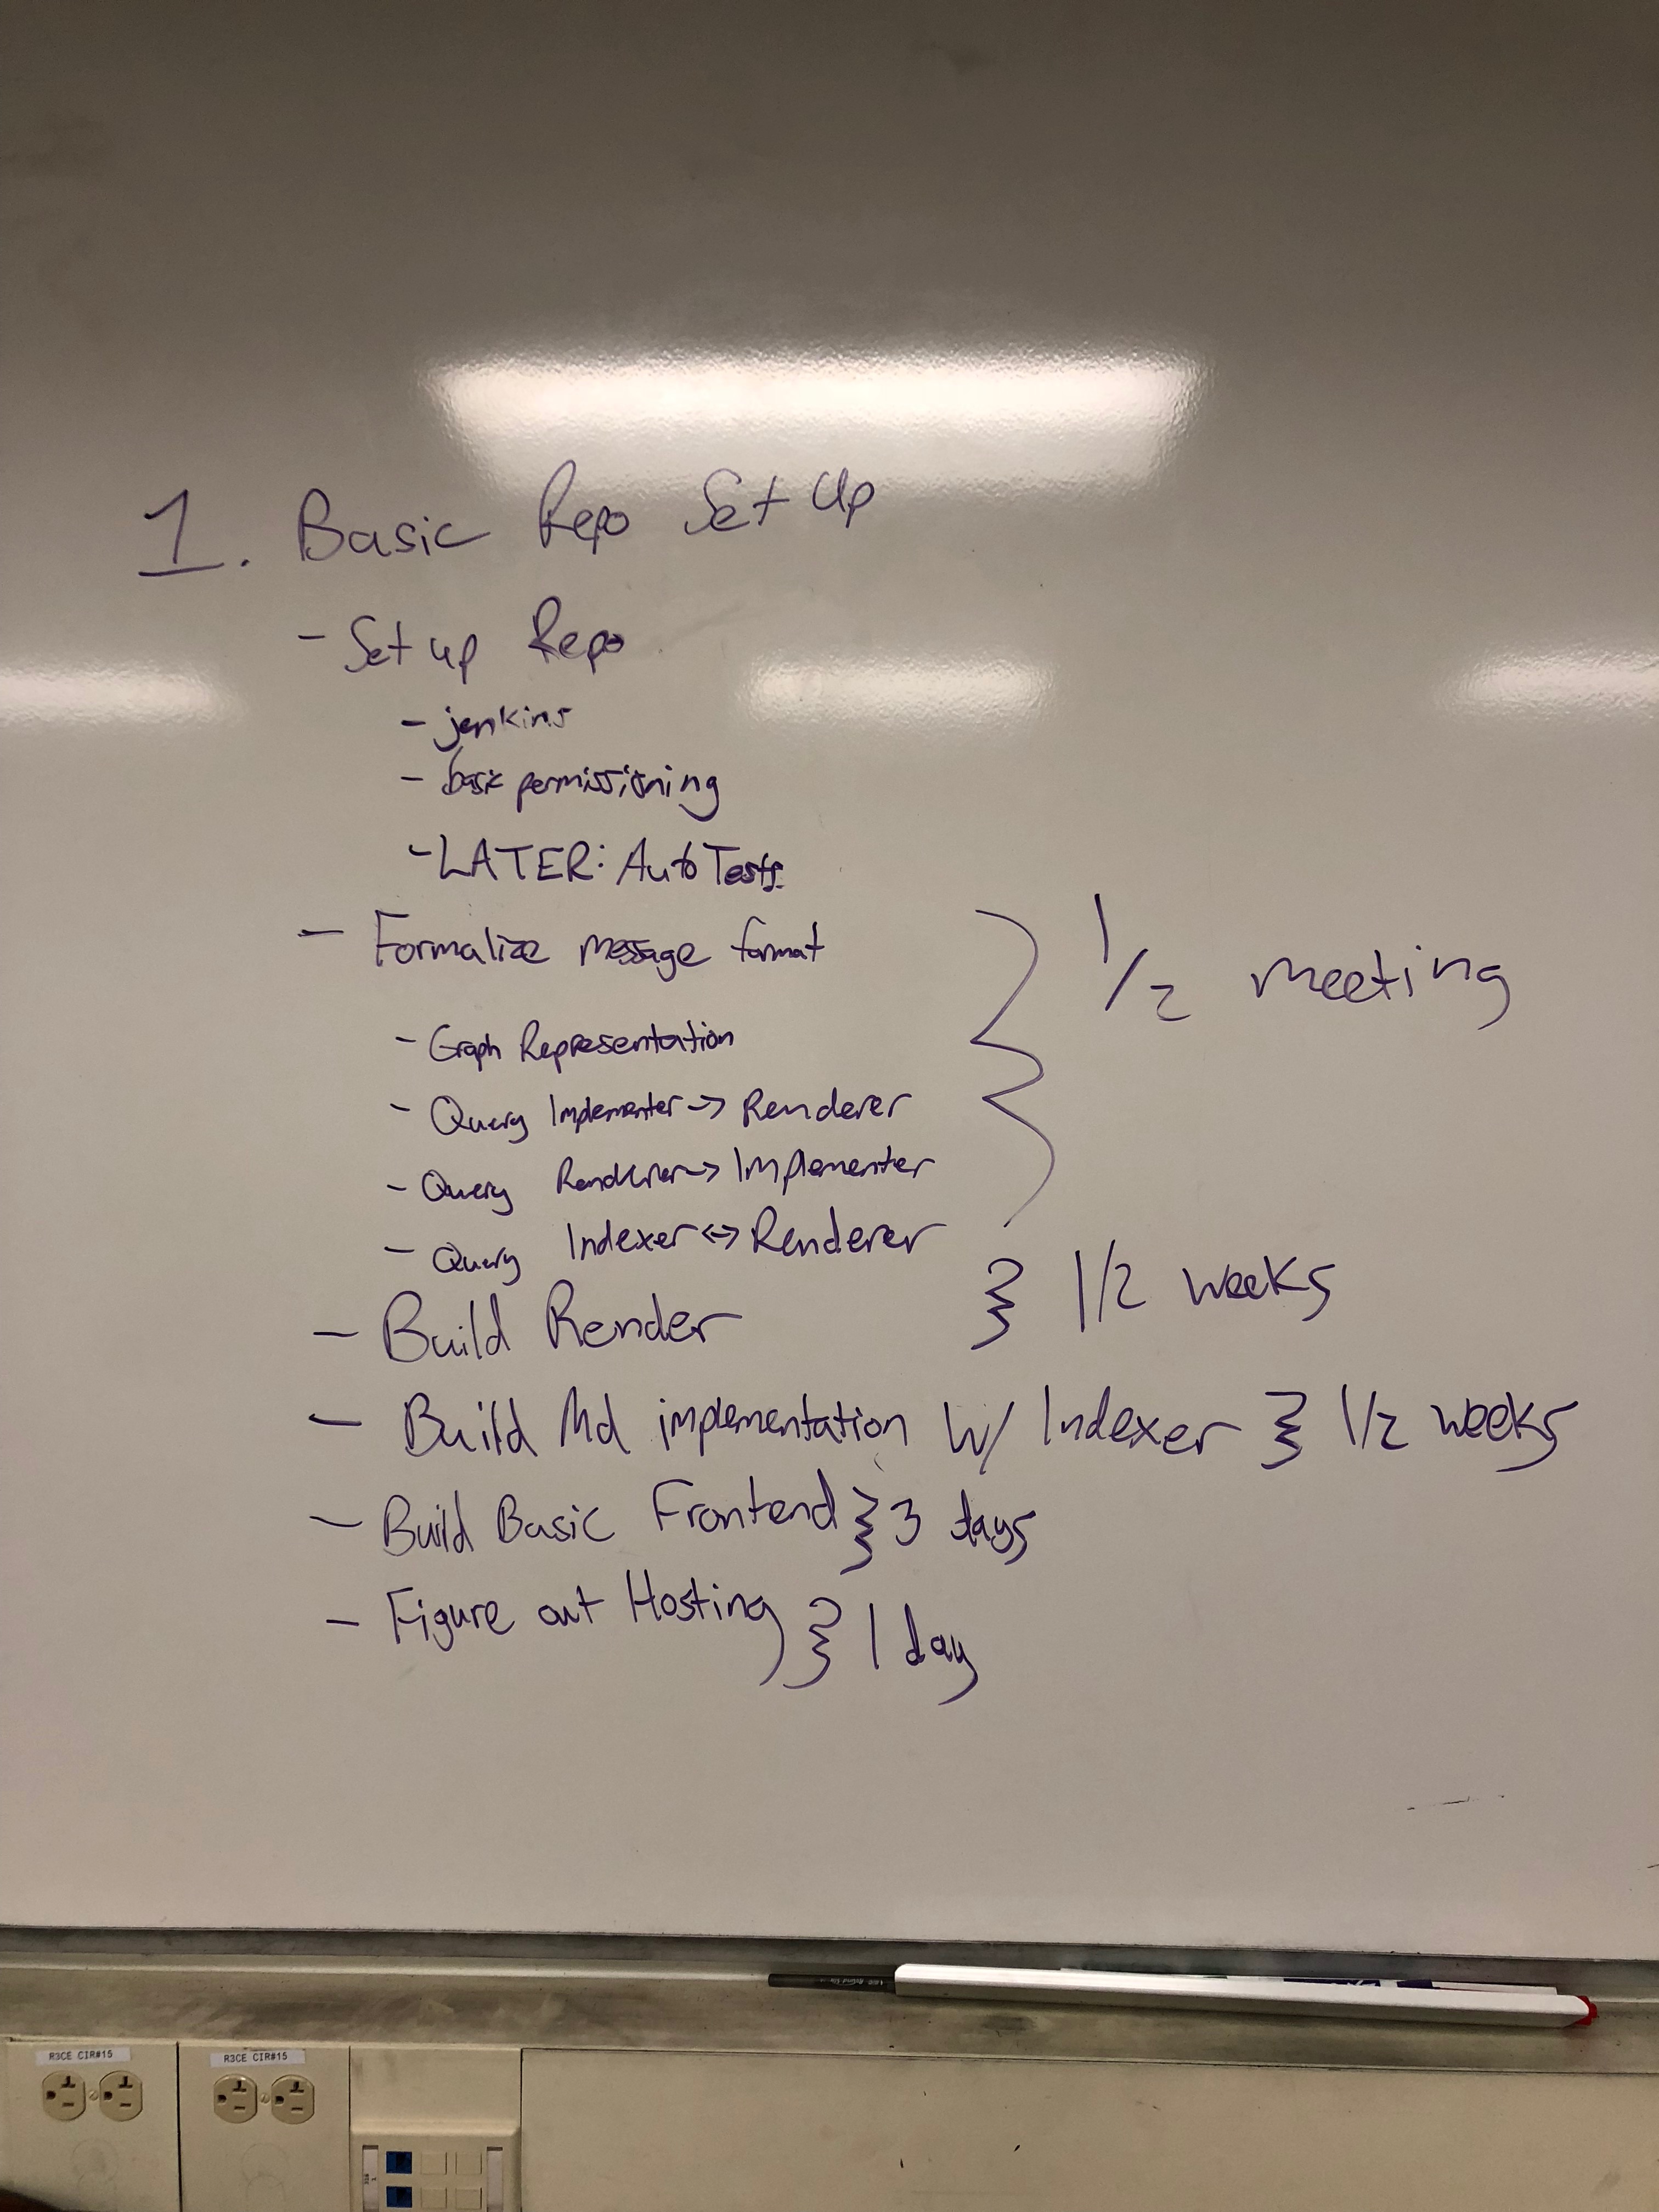 1. Basic Repo Set Up
- Set up Repo
- jenkins
- basic permissioning
- LATER: Auto Tests
- Formalize message format
1/2 meeting
- Graph Representation
- Query Implementer -> Renderer
- Query Renderer -> Implementer
- Query Indexer <-> Renderer
- Build Render } 1/2 weeks
- Build Md implementation w/ Indexer } 1/2 weeks
- Build Basic Frontend } 3 days
- Figure out Hosting } 1 day
R3CE CIR#15
R3CE CIR#15